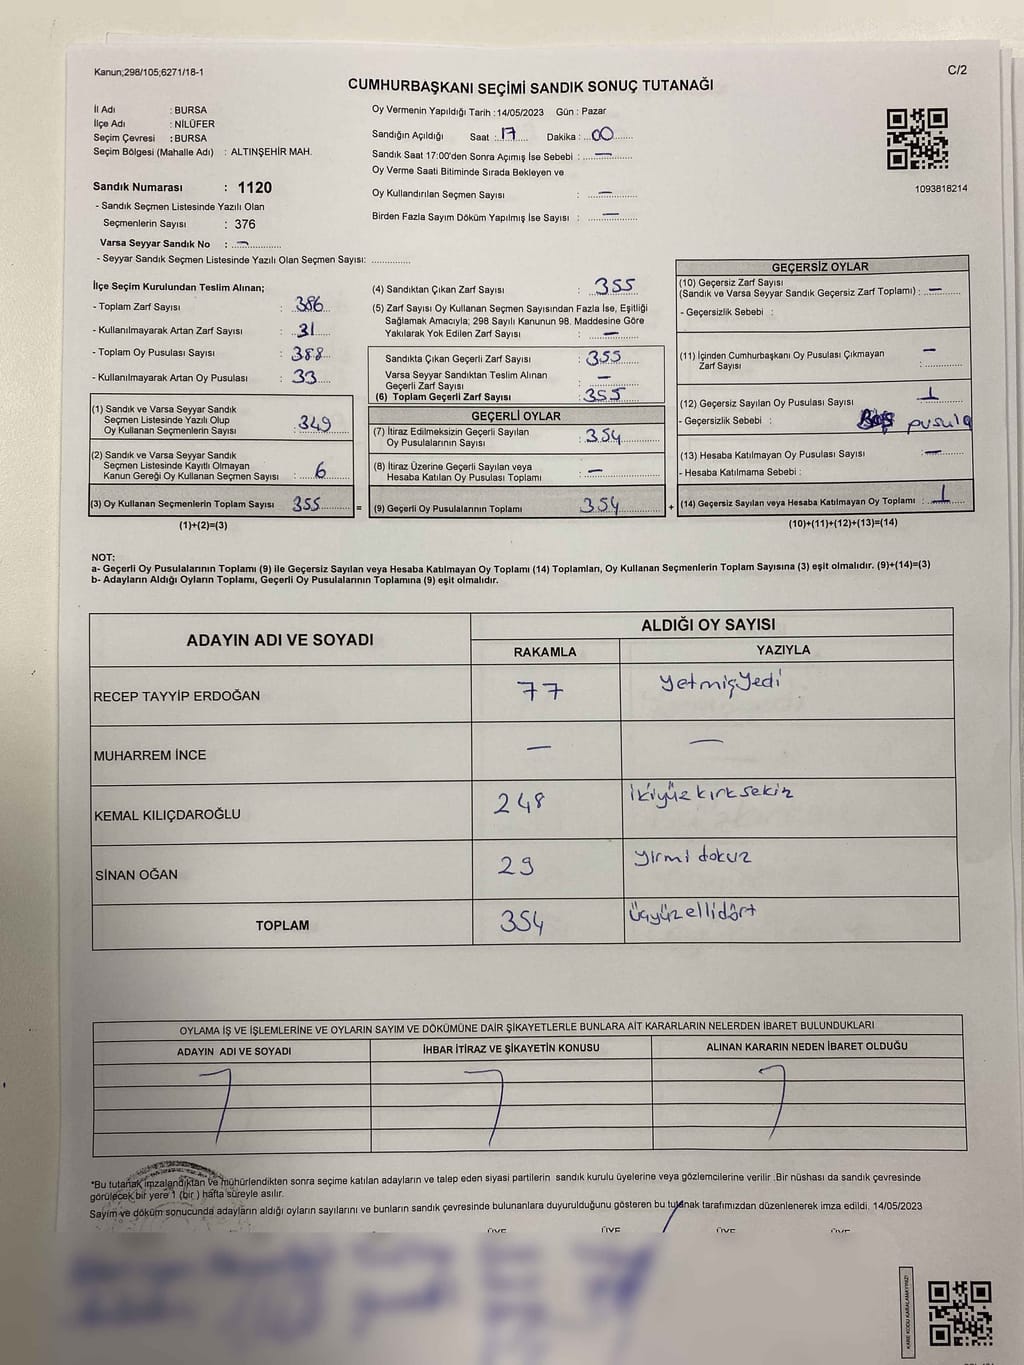 Kanun;298/105;6271/18-1
C/2
CUMHURBAŞKANI SEÇİMİ SANDIK SONUÇ TUTANAĞI
İl Adı : BURSA
İlçe Adı : NİLÜFER
Seçim Çevresi : BURSA
Seçim Bölgesi (Mahalle Adı) : ALTINŞEHİR MAH.
Sandık Numarası : 1120
- Sandık Seçmen Listesinde Yazılı Olan
Seçmenlerin Sayısı : 376
Varsa Seyyar Sandık No : –
- Seyyar Sandık Seçmen Listesinde Yazılı Olan Seçmen Sayısı: ..............
Oy Vermenin Yapıldığı Tarih :14/05/2023 Gün : Pazar
Sandığın Açıldığı Saat : 17 Dakika : 00
Sandık Saat 17:00'den Sonra Açımış İse Sebebi : –
Oy Verme Saati Bitiminde Sırada Bekleyen ve
Oy Kullandırılan Seçmen Sayısı : –
Birden Fazla Sayım Döküm Yapılmış İse Sayısı : –
1093818214
İlçe Seçim Kurulundan Teslim Alınan;
- Toplam Zarf Sayısı : 386
- Kullanılmayarak Artan Zarf Sayısı : 31
- Toplam Oy Pusulası Sayısı : 388
- Kullanılmayarak Artan Oy Pusulası : 33
(1) Sandık ve Varsa Seyyar Sandık
Seçmen Listesinde Yazılı Olup
Oy Kullanan Seçmenlerin Sayısı : 349
(2) Sandık ve Varsa Seyyar Sandık
Seçmen Listesinde Kayıtlı Olmayan
Kanun Gereği Oy Kullanan Seçmen Sayısı : 6
(3) Oy Kullanan Seçmenlerin Toplam Sayısı 355 =
(1)+(2)=(3)
(4) Sandıktan Çıkan Zarf Sayısı : 355
(5) Zarf Sayısı Oy Kullanan Seçmen Sayısından Fazla İse, Eşitliği
Sağlamak Amacıyla; 298 Sayılı Kanunun 98. Maddesine Göre
Yakılarak Yok Edilen Zarf Sayısı : –
Sandıkta Çıkan Geçerli Zarf Sayısı : 355
Varsa Seyyar Sandıktan Teslim Alınan
Geçerli Zarf Sayısı : –
(6) Toplam Geçerli Zarf Sayısı : 355
GEÇERLİ OYLAR
(7) İtiraz Edilmeksizin Geçerli Sayılan
Oy Pusulalarının Sayısı : 354
(8) İtiraz Üzerine Geçerli Sayılan veya
Hesaba Katılan Oy Pusulası Toplamı : –
(9) Geçerli Oy Pusulalarının Toplamı 354 +
GEÇERSİZ OYLAR
(10) Geçersiz Zarf Sayısı
(Sandık ve Varsa Seyyar Sandık Geçersiz Zarf Toplamı) : –
- Geçersizlik Sebebi :
(11) İçinden Cumhurbaşkanı Oy Pusulası Çıkmayan
Zarf Sayısı : –
(12) Geçersiz Sayılan Oy Pusulası Sayısı : 1
- Geçersizlik Sebebi : Boş pusula
(13) Hesaba Katılmayan Oy Pusulası Sayısı : –
- Hesaba Katılmama Sebebi :
(14) Geçersiz Sayılan veya Hesaba Katılmayan Oy Toplamı : 1
(10)+(11)+(12)+(13)=(14)
NOT:
a- Geçerli Oy Pusulalarının Toplamı (9) ile Geçersiz Sayılan veya Hesaba Katılmayan Oy Toplamı (14) Toplamları, Oy Kullanan Seçmenlerin Toplam Sayısına (3) eşit olmalıdır. (9)+(14)=(3)
b- Adayların Aldığı Oyların Toplamı, Geçerli Oy Pusulalarının Toplamına (9) eşit olmalıdır.
ADAYIN ADI VE SOYADI
ALDIĞI OY SAYISI
RAKAMLA YAZIYLA
RECEP TAYYİP ERDOĞAN 77 yetmişyedi
MUHARREM İNCE – –
KEMAL KILIÇDAROĞLU 248 ikiyüzkırksekiz
SİNAN OĞAN 29 yirmi dokuz
TOPLAM 354 Üçyüzellidört
OYLAMA İŞ VE İŞLEMLERİNE VE OYLARIN SAYIM VE DÖKÜMÜNE DAİR ŞİKAYETLERLE BUNLARA AİT KARARLARIN NELERDEN İBARET BULUNDUKLARI
ADAYIN ADI VE SOYADI İHBAR İTİRAZ VE ŞİKAYETİN KONUSU ALINAN KARARIN NEDEN İBARET OLDUĞU
*Bu tutanak imzalandıktan ve mühürlendikten sonra seçime katılan adayların ve talep eden siyasi partilerin sandık kurulu üyelerine veya gözlemcilerine verilir .Bir nüshası da sandık çevresinde
görülecek bir yere 1 (bir ) hafta süreyle asılır.
Sayım ve döküm sonucunda adayların aldığı oyların sayılarını ve bunların sandık çevresinde bulunanlara duyurulduğunu gösteren bu tutanak tarafımızdan düzenlenerek imza edildi. 14/05/2023
ÜYE ÜYE ÜYE ÜYE
KARE KODU KARALAMAYINIZ!